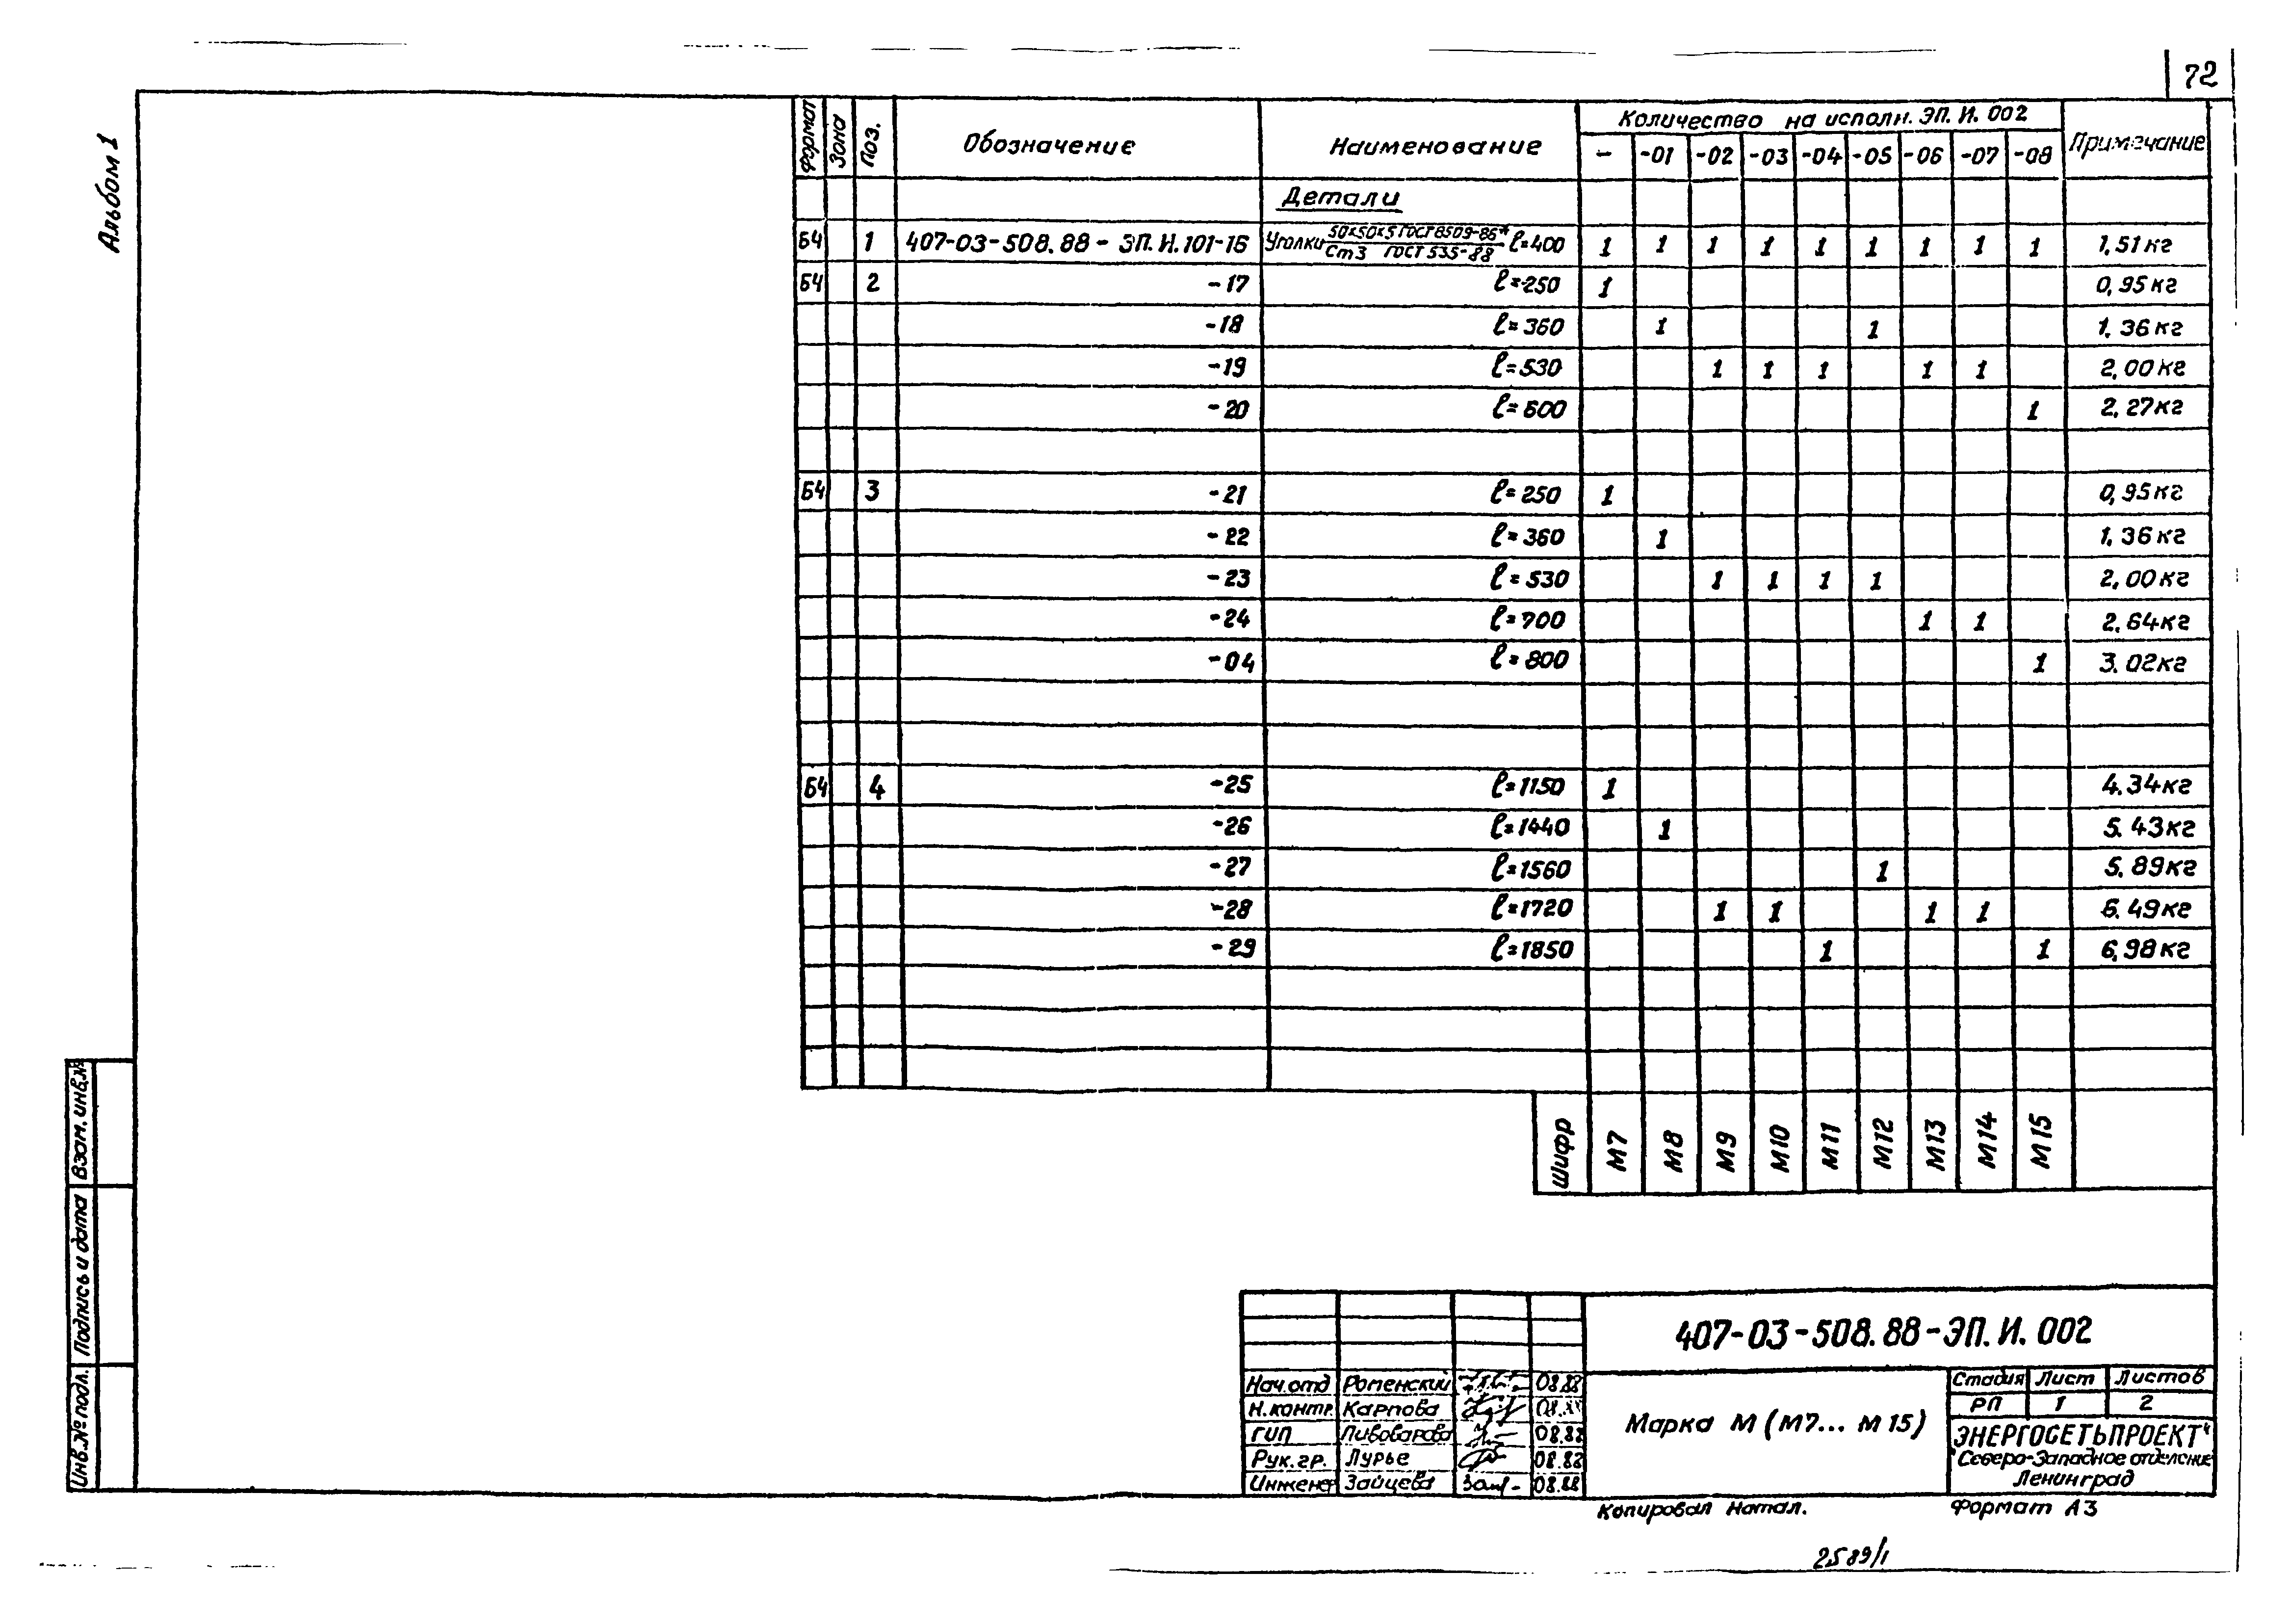 72
Альбом 1
Формат Зона Поз. Обозначение Наименование Количество на исполн. ЭП. И. 002 Примечание
- -01 -02 -03 -04 -05 -06 -07 -08
Детали
Б4 1 407-03-508.88 - ЭП. И. 101-16 Уголки 50×50×5 ГОСТ 8509-86* Ст3 ГОСТ 535-88 ℓ=400 1 1 1 1 1 1 1 1 1 1,51кг
Б4 2 -17 ℓ=250 1 0,95кг
-18 ℓ=360 1 1 1.36кг
-19 ℓ=530 1 1 1 1 1 2,00кг
-20 ℓ=600 1 2,27кг
Б4 3 -21 ℓ=250 1 0,95кг
-22 ℓ=360 1 1,36кг
-23 ℓ=530 1 1 1 1 2,00кг
-24 ℓ=700 1 1 2,64кг
-04 ℓ=800 1 3.02кг
Б4 4 -25 ℓ=1150 1 4.34кг
-26 ℓ=1440 1 5.43кг
-27 ℓ=1560 1 5.89кг
-28 ℓ=1720 1 1 1 1 6.49кг
-29 ℓ=1850 1 1 6,98кг
Шифр М7 М8 М9 М10 М11 М12 М13 М14 М15
Взам. инв.№
Подпись и дата
Инв.№ подл.
407-03-508.88-ЭП. И. 002
Нач.отд Роменский 08.88
Н.контр. Карпова
ГИП Пивоварова 08.88
Рук.гр. Лурье 08.88
Инженер Зайцева Зай- 08.88
Марка М (М7... М15)
Стадия Лист Листов
РП 1 2
"ЭНЕРГОСЕТЬПРОЕКТ"
Северо-Западное отделение
Ленинград
Копировал Натал. Формат А3
2589/1